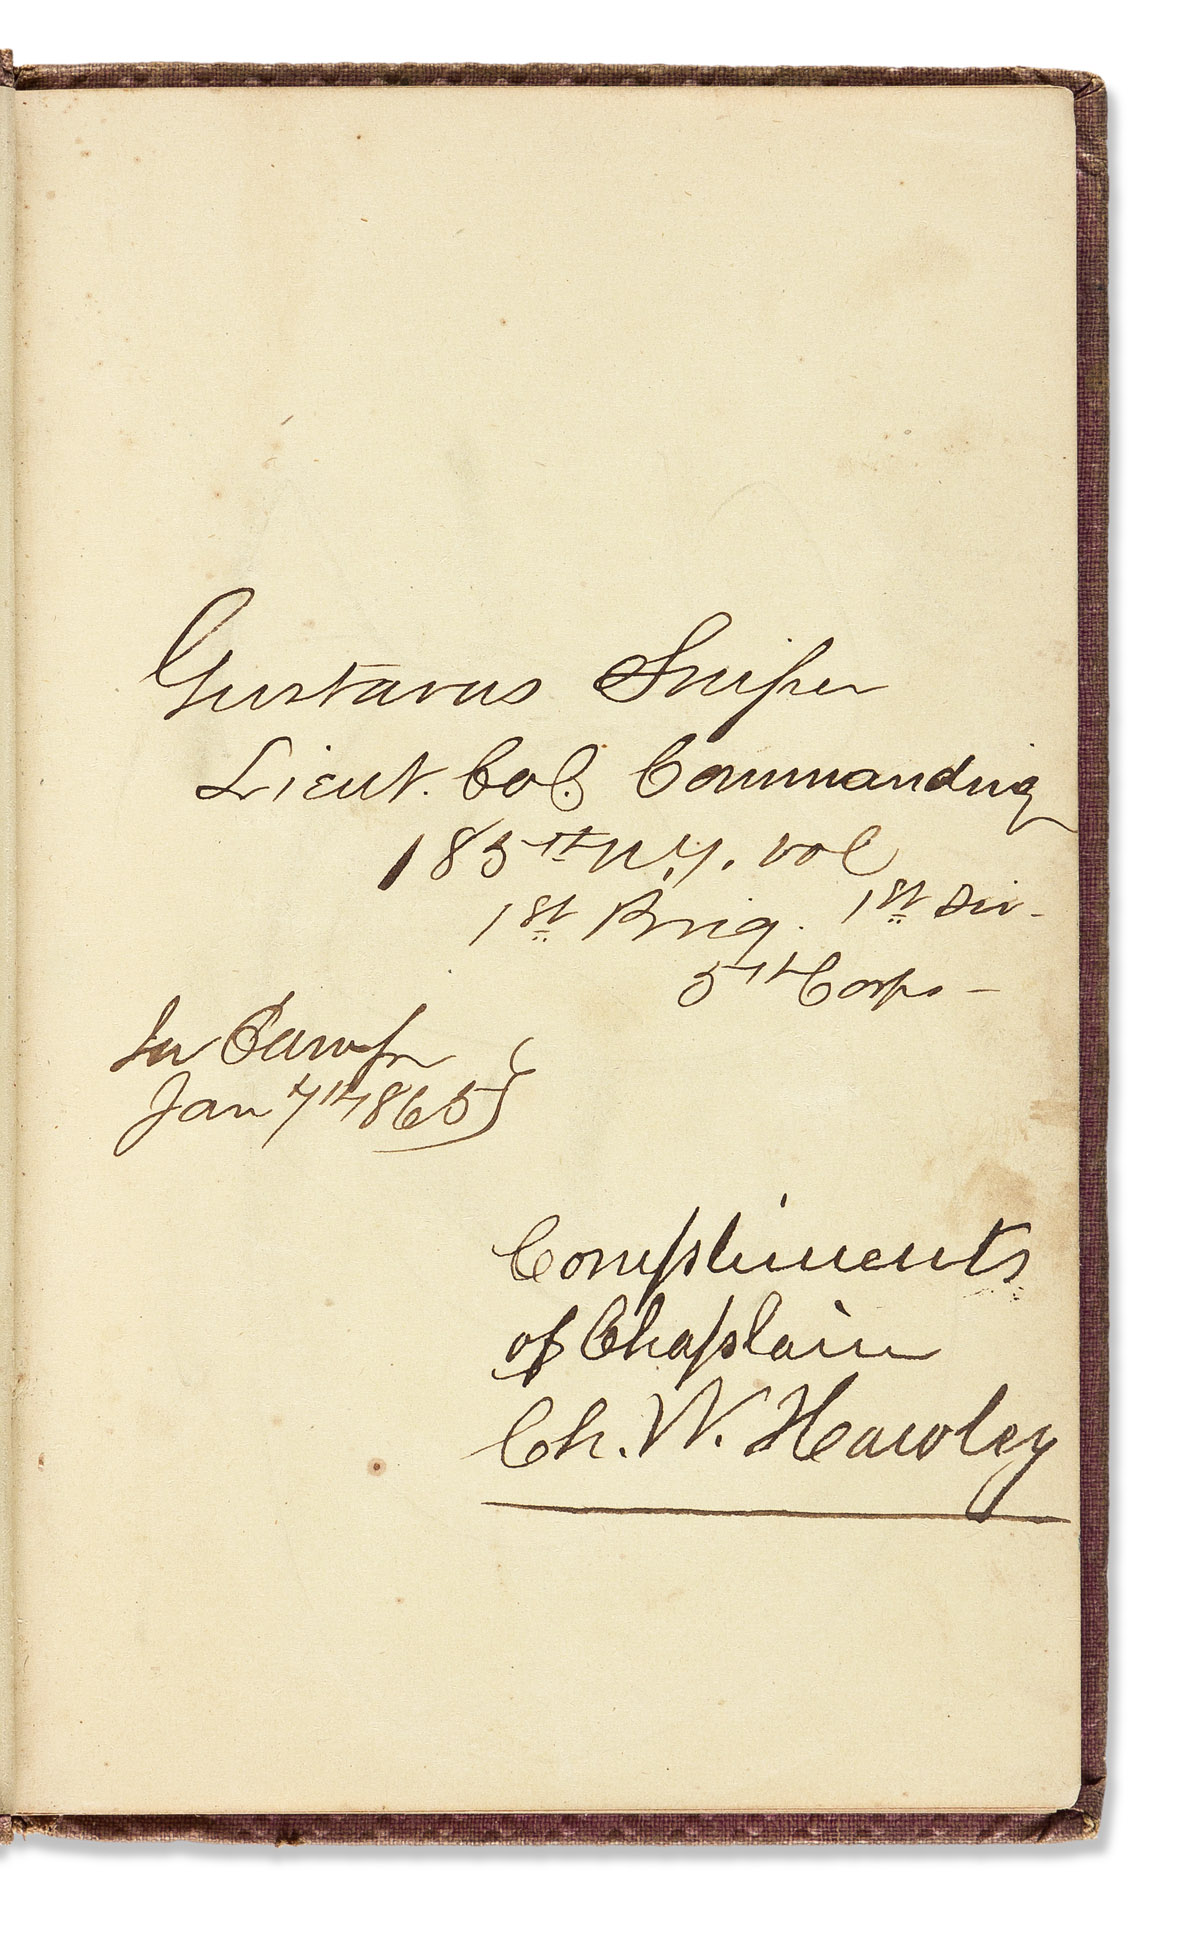 Gustavus Sniper
Lieut. Col. Commanding
185th N.Y. Vol
1st Brig. 1st Div-
5th Corps-
In Camp
Jan 7th 1865
Compliments
of Chaplain
Ch. W. Hawley